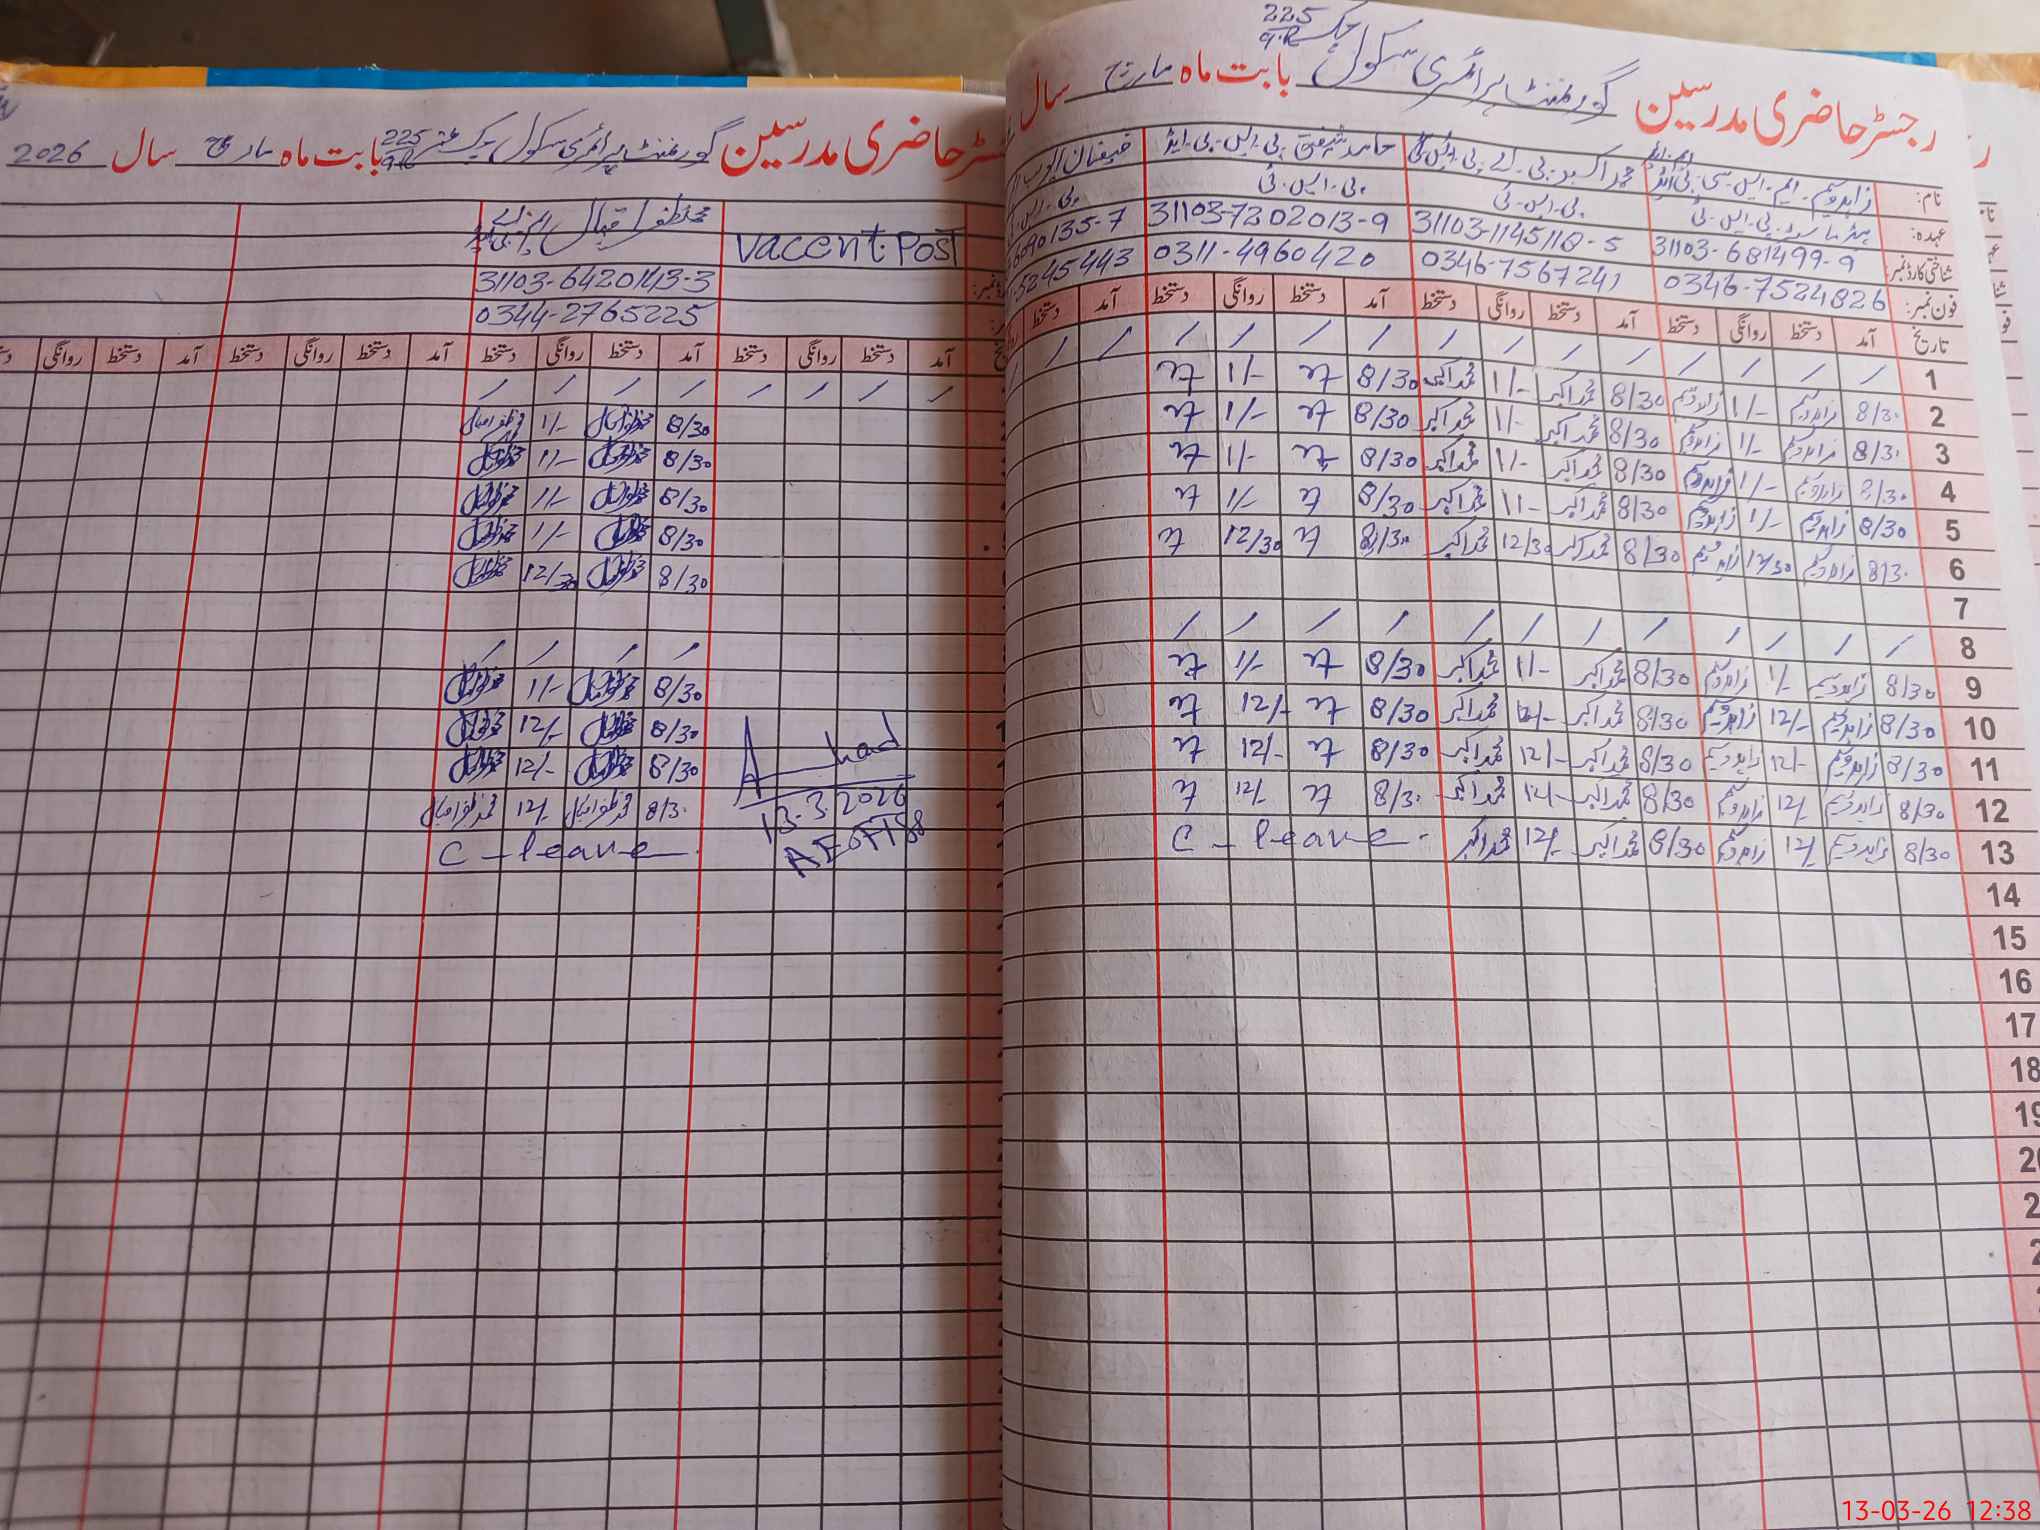 رجسٹر حاضری مدرسین گورنمنٹ پرائمری سکول چک 225/9.R بابت ماہ مارچ سال
نام: زاہد وسیم۔ ایم۔ ایس۔ سی۔ بی ایڈ محمد اکبر۔ بی۔ اے۔ حامد شفیق بی۔ ایس۔ بی۔ ایڈ
عہدہ: ہیڈ ماسٹر۔ پی۔ ایس۔ ٹی پی۔ ایس۔ ٹی پی۔ ایس۔ ٹی
شناختی کارڈ نمبر: 31103-681499-9 31103-1145118-5 31103-7202013-9 6690135-7
فون نمبر: 0346-7524826 0346-7567241 0311-4960420 5245443
تاریخ آمد دستخط روانگی دستخط آمد دستخط روانگی دستخط آمد دستخط روانگی دستخط آمد دستخط
1 / / / / / / / / / / / / / /
2 8/30 زاہد وسیم 1/- زاہد وسیم 8/30 محمد اکبر 1/- محمد اکبر 8/30 1/-
3 8/30 زاہد وسیم 1/- زاہد وسیم 8/30 محمد اکبر 1/- محمد اکبر 8/30 1/-
4 8/30 زاہد وسیم 1/- زاہد وسیم 8/30 محمد اکبر 1/- محمد اکبر 8/30 1/-
5 8/30 زاہد وسیم 1/- زاہد وسیم 8/30 محمد اکبر 1/- محمد اکبر 8/30 1/-
6 8/30 زاہد وسیم 12/30 زاہد وسیم 8/30 محمد اکبر 12/30 محمد اکبر 8/30 12/30
7
8 / / / / / / / / / / / /
9 8/30 زاہد وسیم 1/- زاہد وسیم 8/30 محمد اکبر 1/- محمد اکبر 8/30 1/-
10 8/30 زاہد وسیم 12/- زاہد وسیم 8/30 محمد اکبر 12/- محمد اکبر 8/30 12/-
11 8/30 زاہد وسیم 12/- زاہد وسیم 8/30 محمد اکبر 12/- محمد اکبر 8/30 12/-
12 8/30 زاہد وسیم 12/- زاہد وسیم 8/30 محمد اکبر 12/- محمد اکبر 8/30 12/-
13 8/30 زاہد وسیم 12/- زاہد وسیم 8/30 محمد اکبر 12/- محمد اکبر C - leave
14
15
16
17
18
19
رجسٹر حاضری مدرسین گورنمنٹ پرائمری سکول چک نمبر 225/9R بابت ماہ مارچ سال 2026
vaccent Post محمد ظفر اقبال
31103-6420143-3
0344-2765225
آمد دستخط روانگی دستخط آمد دستخط روانگی دستخط آمد دستخط روانگی دستخط آمد دستخط روانگی
/ / / / / / / /
8/30 محمد ظفر اقبال 1/- محمد ظفر اقبال
8/30 1/-
8/30 1/-
8/30 1/-
8/30 12/30
/ / / /
8/30 1/-
8/30 12/-
8/30 12/-
8/30 محمد ظفر اقبال 12/- محمد ظفر اقبال
C - leave
13.3.2026
13-03-26 12:38